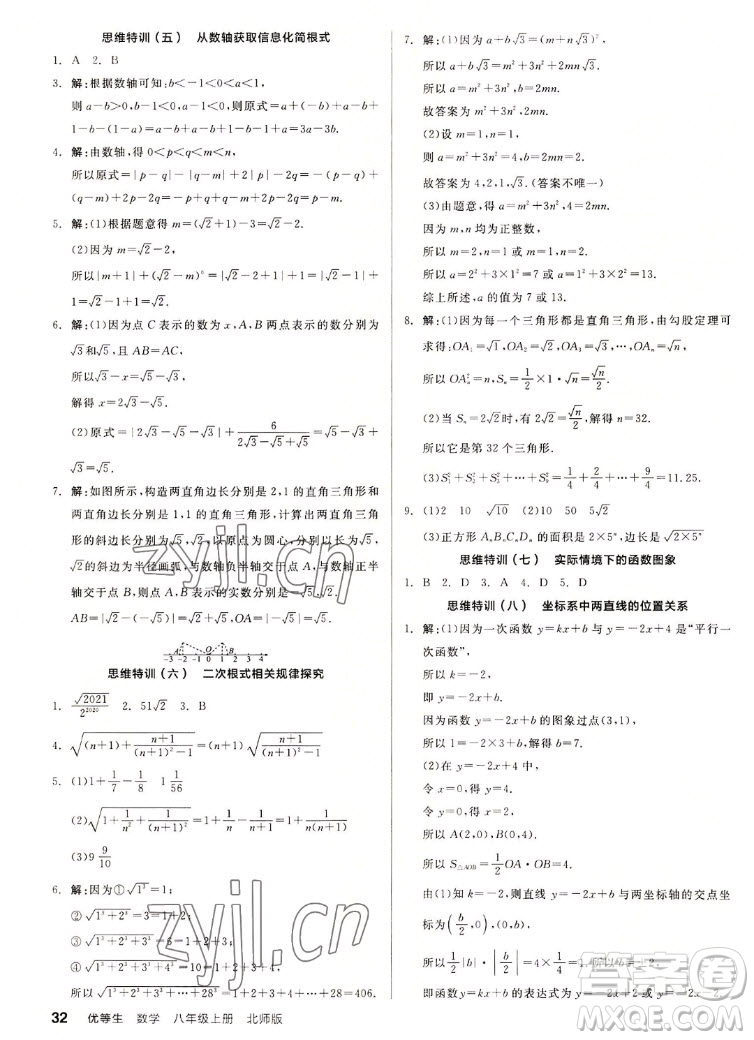 思维特训（五）　从数轴获取信息化简根式
1. A　2. B
3. 解:根据数轴可知:b<-1<0,a>0,
4. 解:由数轴,得0<p<m,n<q<0,
所以原式=|p-q|-|m+n|+|p-m|+|n-q|=
5. 解:(1)根据题意得m=(√2+1)-3=√2-2.
(2)因为m=√2-2,
6. 解:(1)因为点C表示的数为x,A,B两点表示的数分别为
√3和√5,且AB=AC,
所以√3-x=√5-√3,
解得x=2√3-√5.
(2)原式=|2√3-√5-√3|+6/(2√3-√5+√5)=
√5-√3+√3=√5.
7. 解:如图所示,构造两直角边长分别是2,1的直角三角形和
两直角边长分别是1,1的直角三角形,计算出两直角三角
形的斜边长分别是√5,√2,以原点为圆心,分别以
的斜边长为半径画弧,与数轴负半轴交于点A,与数轴正半
轴交于点B,则OB=√2,OA=√5(答案合理即可).
-3 -2 -1 0 1 2 3
思维特训（六）　二次根式相关规律探究
1. √2021/2²⁰²⁰　2. 51√2　3. B
4. √((n+1)+(n+1)/((n+1)²-1))=(n+1)√((n+1)/((n+1)²-1))
5. (1)1+1/7-1/8　1 1/56
(3)9 9/10
6. 解:因为①√1³=1;
②√(1³+2³)=1+2=3;
③√(1³+2³+3³)=1+2+3=6;
④√(1³+2³+3³+4³)=1+2+3+4=10;
所以√(1³+2³+3³+…+28³)=1+2+3+…+28=406.
7. 解:(1)因为a+b√3=(m+n√3)²,
所以a+b√3=m²+3n²+2mn√3,
所以a=m²+3n²,b=2mn.
故答案为m²+3n²,2mn.
(2)设m=1,n=1,
则a=m²+3n²=4,b=2mn=2.
故答案为4,2,1,√3.(答案不唯一)
(3)由题意,得a=m²+3n²,b=2mn.
因为4=2mn,且m,n为正整数,
所以m=2,n=1或m=1,n=2,
所以a=2²+3×1²=7或a=1²+3×2²=13.
综上所述,a的值为7或13.
8. 解:(1)因为每一个三角形都是直角三角形,由勾股定理可
求得:OA₁=√1,OA₂=√2,…,OAₙ=√n,
所以OAₙ²=n,Sₙ=1/2×1·√n=√n/2.
(2)当Sₙ=2√2时,有2√2=√n/2,解得n=32.
所以它是第32个三角形.
(3)S₁²+S₂²+S₃²+…+S₉²=1/4+2/4+3/4+…+9/4=11.25.
9. (1)2　10　√10　(2)10　50
(3)正方形AₙBₙCₙDₙ的面积是2×5ⁿ,边长是√(2×5ⁿ)
思维特训（七）　实际情境下的函数图象
1. B　2. D　3. A　4. D　5. D
思维特训（八）　坐标系中两直线的位置关系
1. 解:(1)因为一次函数y=kx+b与y=-2x是“平行一
次函数”,
所以k=-2,
即y=-2x+b.
因为函数y=kx+b的图象过点(3,1),
(2)在y=-2x+4中,
令x=0,
令y=0,
所以A(2,0),
所以S△AOB=1/2OA·OB=4.
由(1)知k=-2,则直线y=-2x+b与两坐标轴的交点坐
所以1/2|b|·|b/2|=4×1/4,
即函数y=kx+b的表达式为y=-2x+2或y=-2x-2.
32　优等生　数学　八年级上册　北师版
zyjl.cn
zyjl.cn
答案圈